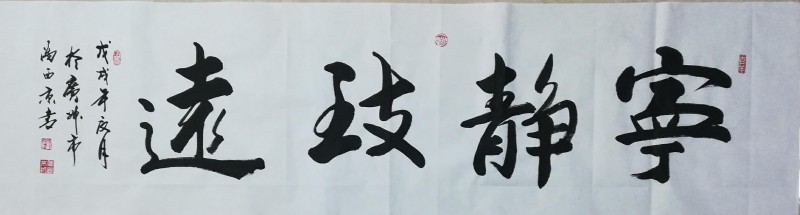 寧静致遠
戊戌年夏月
於廣州市
西京書